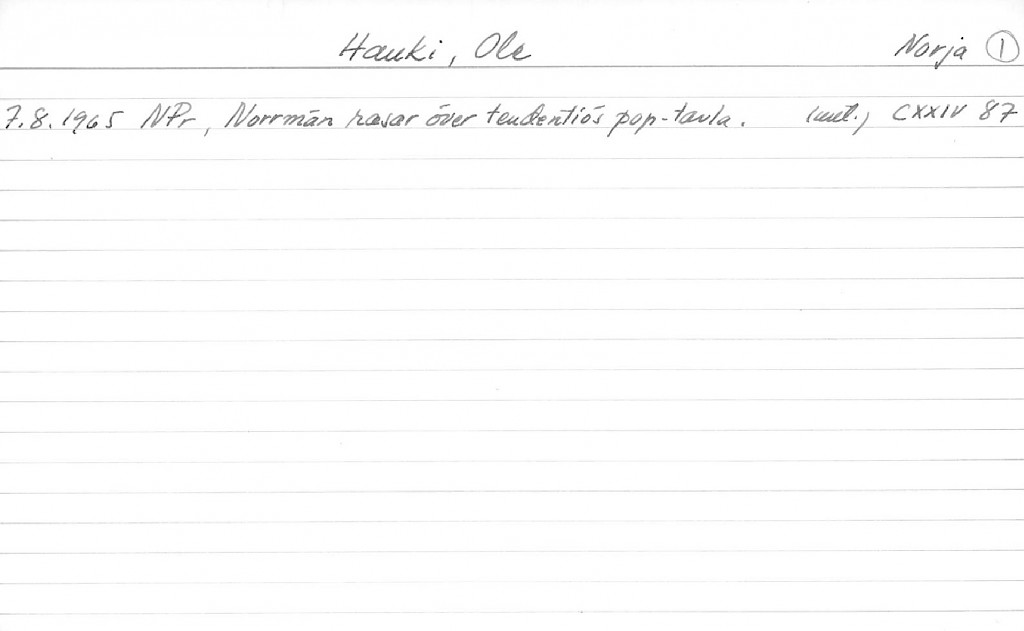 Hauki, Ole Norja 1
7.8.1965 NPr, Norrmän rasar över tendentiös pop-tavla. (mt.) CXXIV 87